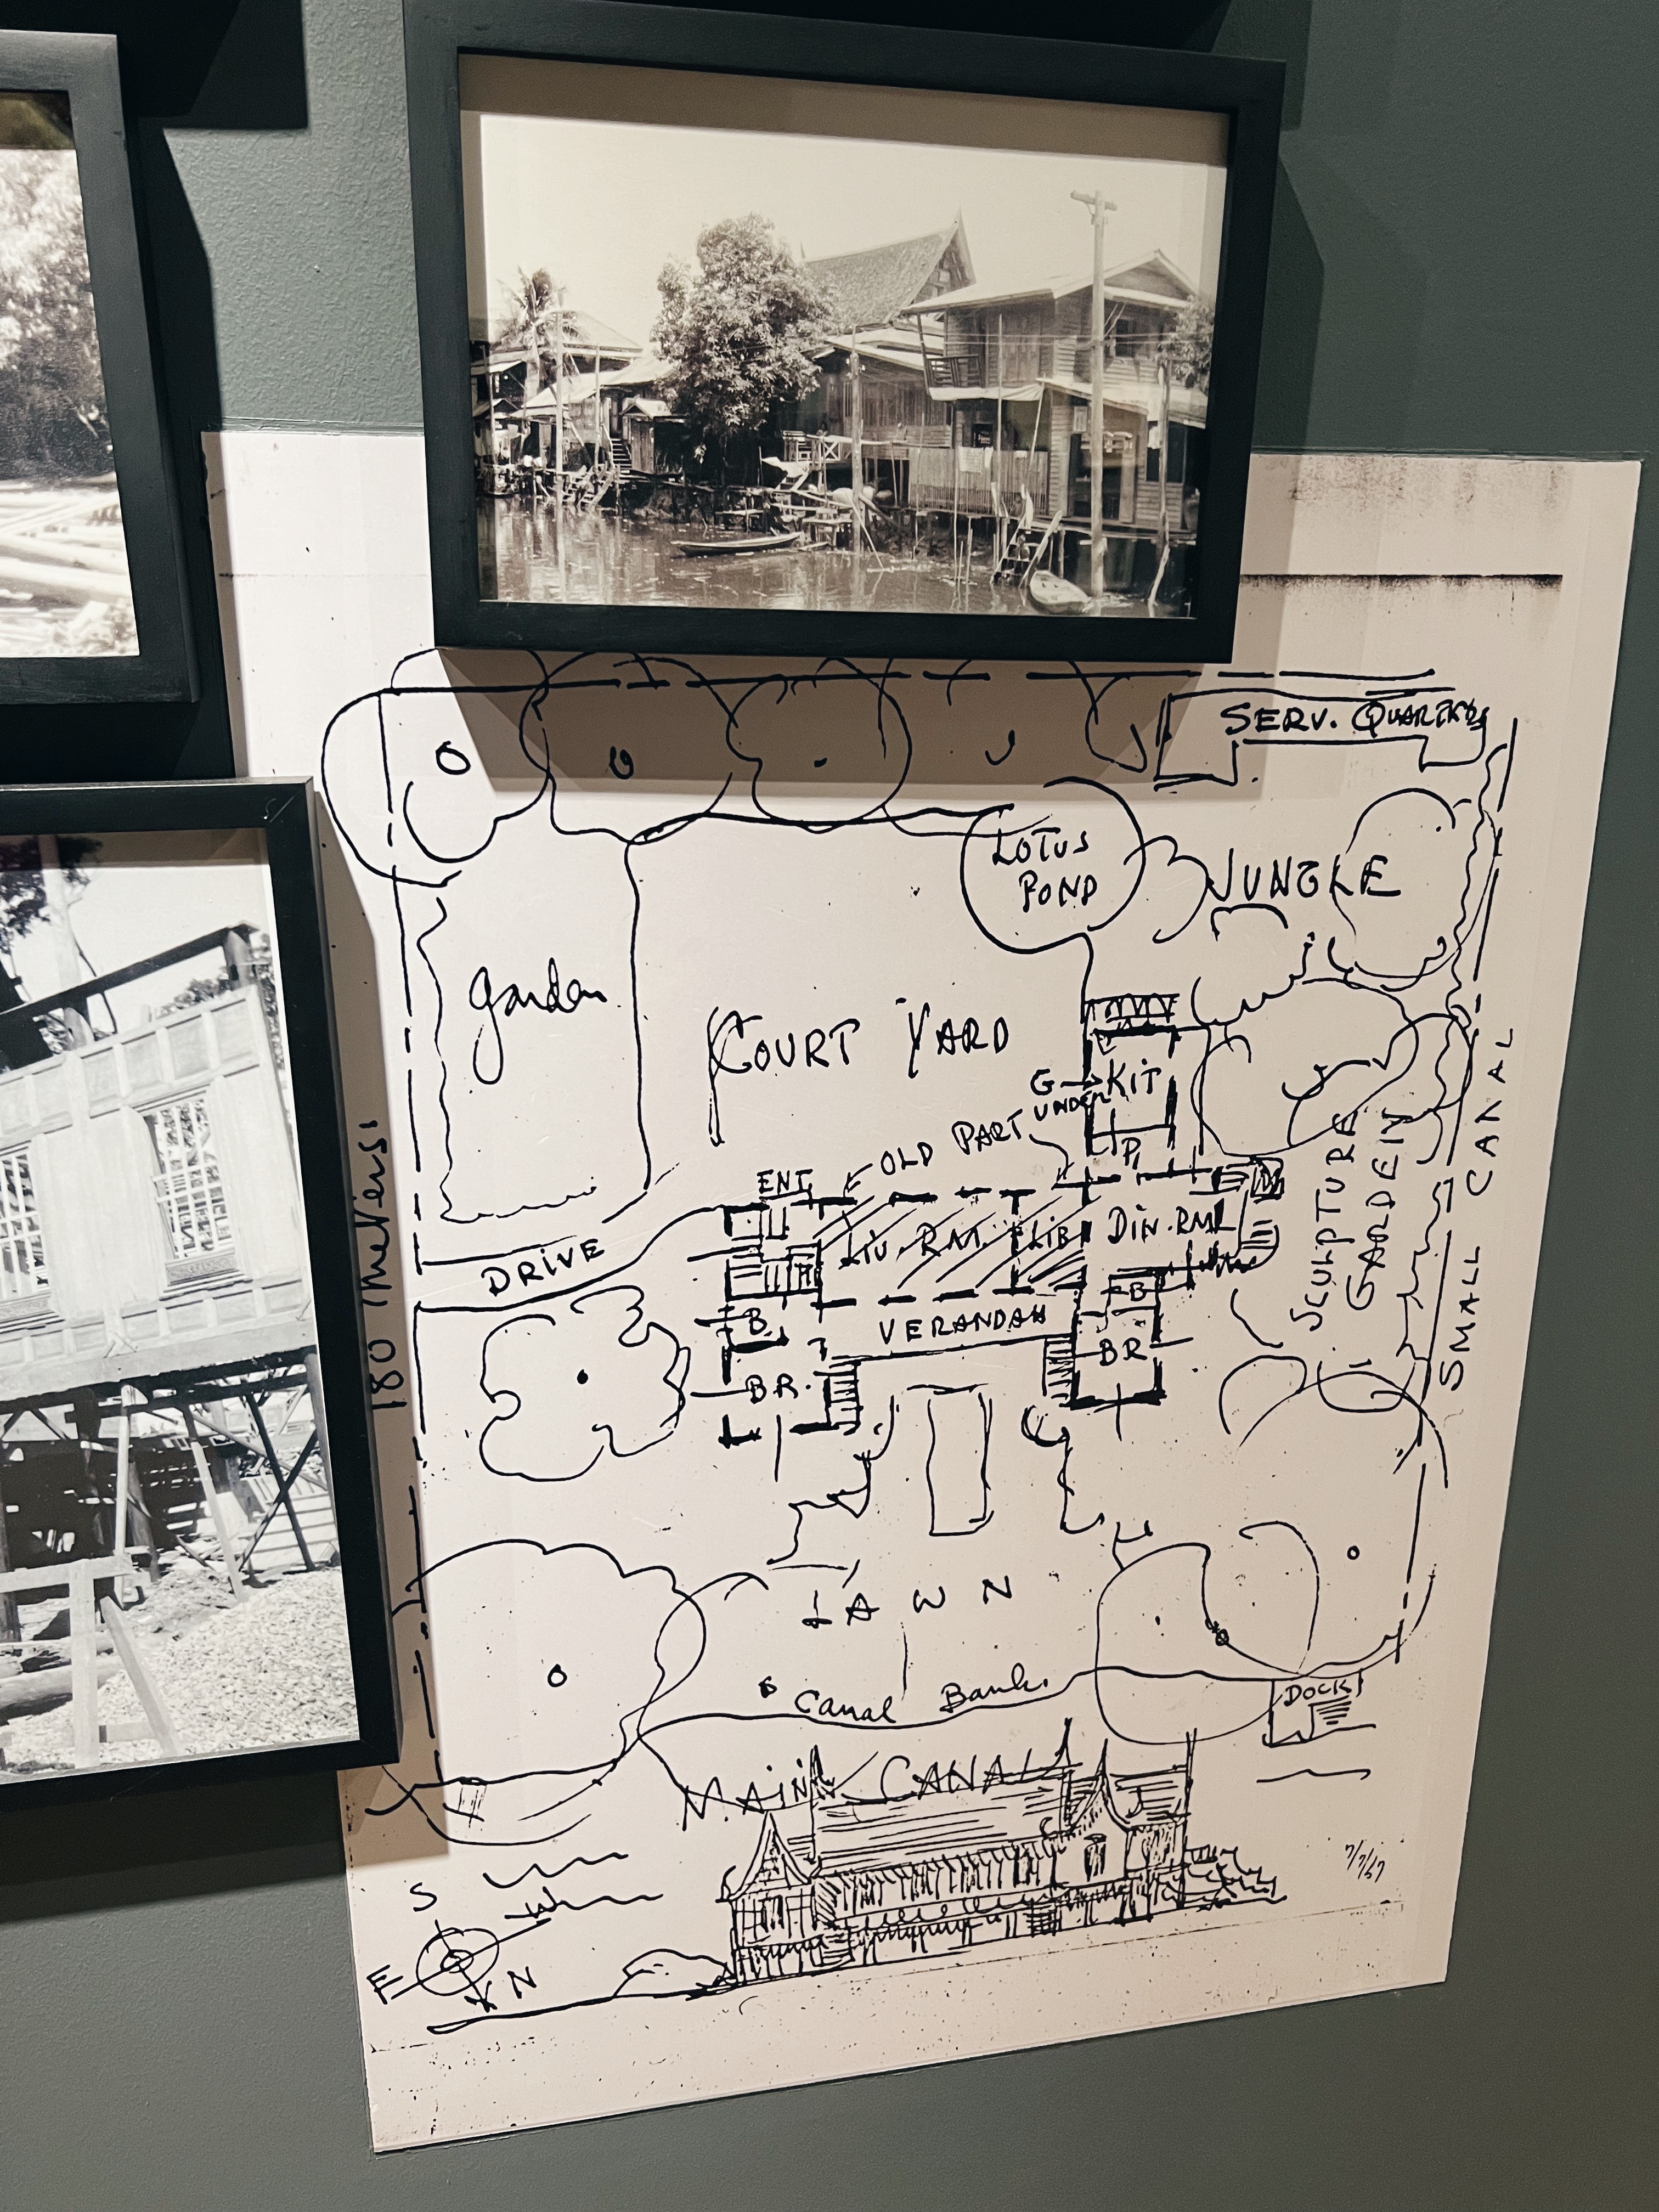 SERV. QUARTERS
LOTUS
POND
JUNGLE
garden
COURT YARD
G→KIT
UNDER
OLD PART
P.
ENT
LIV. RM. LIB DIN. RM
DRIVE
B
B
VERANDAH
BR
BR.
SCULPTURE
GARDEN
SMALL CANAL
180 Meters
LAWN
Canal Bank
DOCK
MAIN CANAL
7/7/67
S
W
E
N